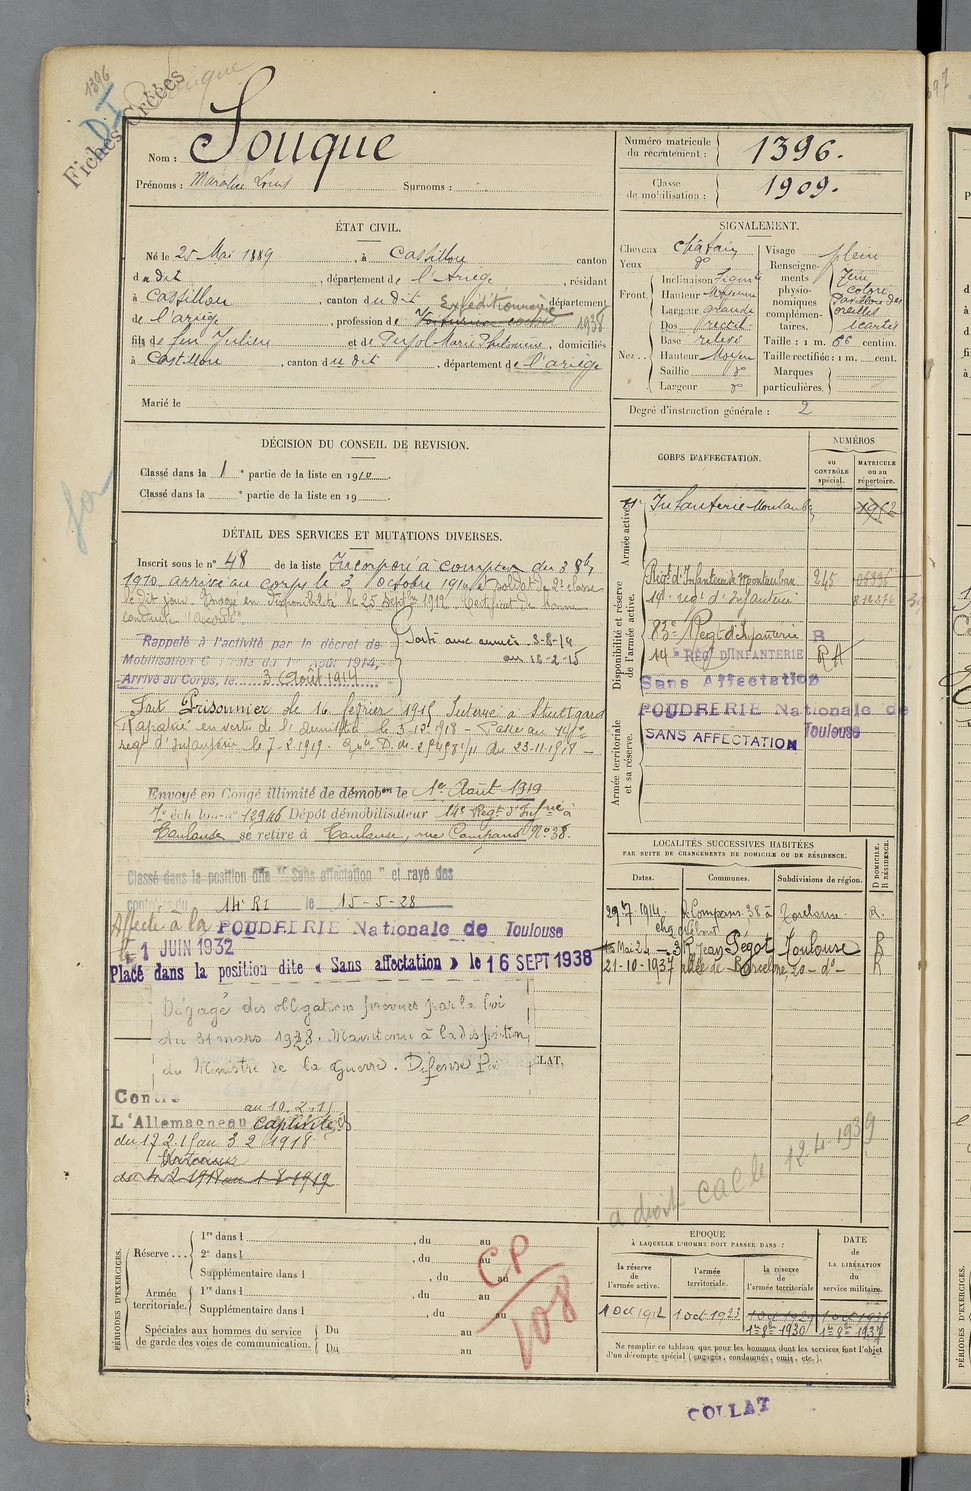 1396
Fiches Créées
Nom : Souque
Prénoms : Louis
Surnoms :
Numéro matricule du recrutement : 1396.
Classe de mobilisation : 1909.
ÉTAT CIVIL.
Né le 25 Mai 1889, à Castillon canton
dudit, département de l'Ariège, résidant
à Castillon, canton dudit Expéditionnaire département
de l'ariège, profession de 1938
fils de feu Julien et de Pujol Marie Philomène, domiciliés
à Castillon, canton dudit, département de l'ariège
Marié le
SIGNALEMENT.
Cheveux châtain
Yeux do
Front. Inclinaison
Hauteur Moyenne
Largeur grande
Nez Dos rectil.
Base relevé
Hauteur Moyen
Saillie do
Largeur do
Visage plein
Renseignements physionomiques complémentaires.
Teint coloré
oreilles écartées
Taille : 1 m. 66 centim.
Taille rectifiée : 1 m. cent.
Marques particulières.
Degré d'instruction générale : 2
DÉCISION DU CONSEIL DE REVISION.
Classé dans la 1e partie de la liste en 1910.
Classé dans la e partie de la liste en 19
DÉTAIL DES SERVICES ET MUTATIONS DIVERSES.
Inscrit sous le n° 48 de la liste Incorporé à compter du 3 8bre
1910 arrivé au corps le 3 octobre 1910 soldat de 2e classe
le dit jour. Envoyé en disponibilité le 25 septbre 1912. Certificat de bonne
conduite "accordé"
Rappelé à l'activité par le décret de
Mobilisation Générale du 1er Août 1914,
Arrivé au Corps, le 3 Août 1914
aux armées 8-8-14
au 16-2-15
Fait Prisonnier le 16 février 1915 Interné à Stuttgard
Rapatrié en vertu de l'armistice le 3-12-1918 - Passé au 14e
regt d'Infanterie le 7-2-1919. du 23-11-1918 -
Envoyé en Congé illimité de démobon le 1er Août 1919
7e échelon n° 12946 Dépôt démobilisateur 14e Regt d'Infrie à
Toulouse se retire à Toulouse, rue Compans N° 38.
Classé dans la position dite "Sans affectation" et rayé des
contrôles du 14e RI le 15-5-28
Affecté à la POUDRERIE Nationale de Toulouse
le 1 JUIN 1932
Placé dans la position dite « Sans affectation » le 16 SEPT 1938
Dégagé des obligations prévues par la loi
du 31 mars 1928. Maintenu à la disposition
du Ministre de la Guerre. Défense
CLAT,
L'Allemagne au captivité
du 17.2.15 au 3 2 1918
Intérieur
du 4 2 1918 au 1 8 1919
CORPS D'AFFECTATION.
NUMÉROS
au CONTRÔLE spécial.
MATRICULE ou au répertoire.
Armée active.
Infanterie Montauban
1952
Disponibilité et réserve de l'armée active.
Regt d'Infanterie de Montauban 245
14e regt d'Infanterie
83e Regt d'Infanterie R
14e RÉGt D'INFANTERIE RA
Sans Affectation
Armée territoriale et sa réserve.
POUDRERIE Nationale de Toulouse
SANS AFFECTATION
LOCALITÉS SUCCESSIVES HABITÉES
PAR SUITE DE CHANGEMENTS DE DOMICILE OU DE RÉSIDENCE.
Dates. Communes. Subdivisions de région. D DOMICILE. R RÉSIDENCE.
29 7 1914 R. Compans 38 à Toulouse. R.
15 Mai 24 3 R Jean Pégot Toulouse R
21-10-1937 allée de Barcelone, 20 - do - R
12-4-1939
PÉRIODES D'EXERCICES.
Réserve ... 1re dans l , du au
2e dans l , du au
Supplémentaire dans l , du au
Armée territoriale. 1re dans l , du au
Supplémentaire dans l , du au
Spéciales aux hommes du service de garde des voies de communication. Du au
Du au
CP
108
ÉPOQUE
À LAQUELLE L'HOMME DOIT PASSER DANS :
la réserve de l'armée active.
l'armée territoriale.
la réserve de l'armée territoriale
DATE de LA LIBÉRATION du service militaire.
1 Oct 1912 1 oct 1923 1 oct 1929
1er 8bre 1930 1er 8bre 1937
Ne remplir ce tableau que pour les hommes dont les services font l'objet
d'un décompte spécial (engagés, condamnés, omis, etc.).
COLLAT